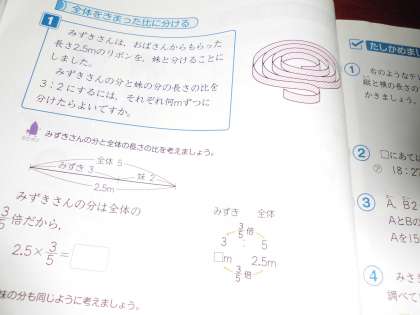 全体をきまった比に分ける
1
みずきさんは、おばさんからもらった
長さ2.5mのリボンを、妹と分けることに
しました。
みずきさんの分と妹の分の長さの比を
3:2にするには、それぞれ何mずつに
分けたらよいですか。
みずきさんの分と全体の長さの比を考えましょう。
全体 5
みずき 3
妹 2
2.5m
みずきさんの分は全体の
3/5倍だから、
2.5×3/5=
みずき 全体
3/5倍
3 : 5
□m 2.5m
3/5倍
妹の分も同じように考えましょう。
たしかめまし
1
右のようなテ
縦と横の長さの
かきましょう。
2
□にあては
㋐ 18:27
3
A、B2
AとBの
Aを15
4
みさき
調べて